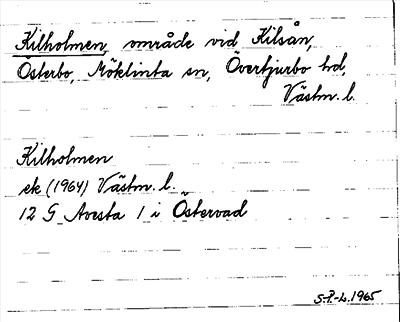 Kilholmen, område vid Kilsån,
Österbo, Möklinta sn, Övertjurbo hd,
Västm. l.
Kilholmen
ek (1964) Västm. l.
12 G Avesta 1 i Östervad
S.-P.-L. 1965